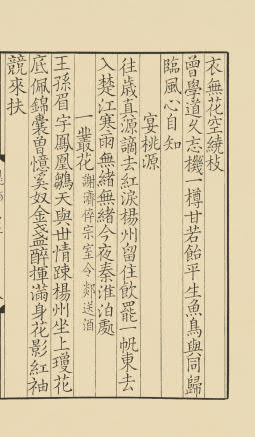 衣無花空繞枝
曾學道久忘機一樽甘若飴平生魚鳥與同歸
臨風心自知
宴桃源
往歲真源謫去紅淚楊州留住飲罷一帆東去
入楚江寒雨無緒無緒今夜秦淮泊處
一叢花 謝濟倅宗室令郯送酒
王孫眉宇鳳凰鶵天與世情踈楊州坐上瓊花
底佩錦囊曾憶奚奴金盞醉揮滿身花影紅袖
競來扶